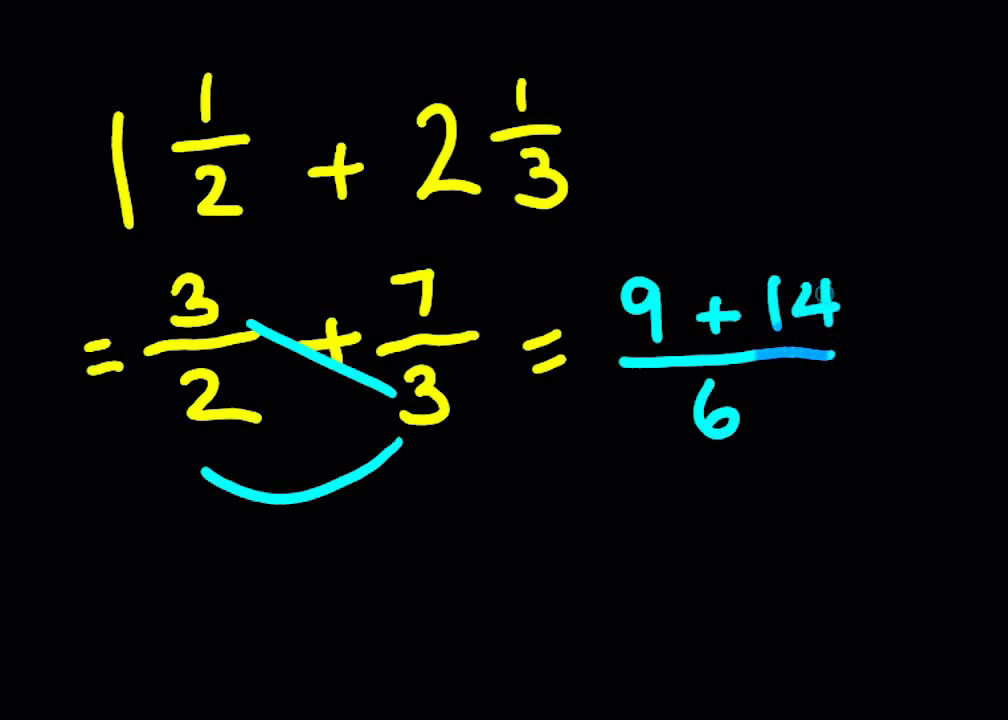 1 1/2 + 2 1/3
= 3/2 + 7/3 = (9 + 14)/6